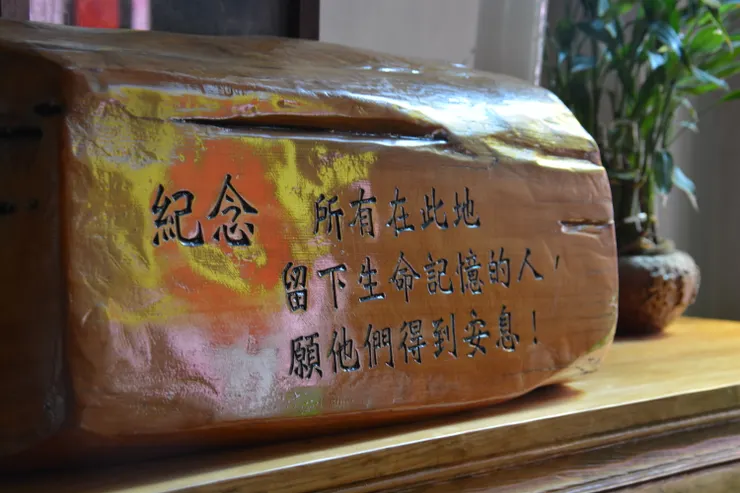 紀念 所有在此地
留下生命記憶的人，
願他們得到安息！